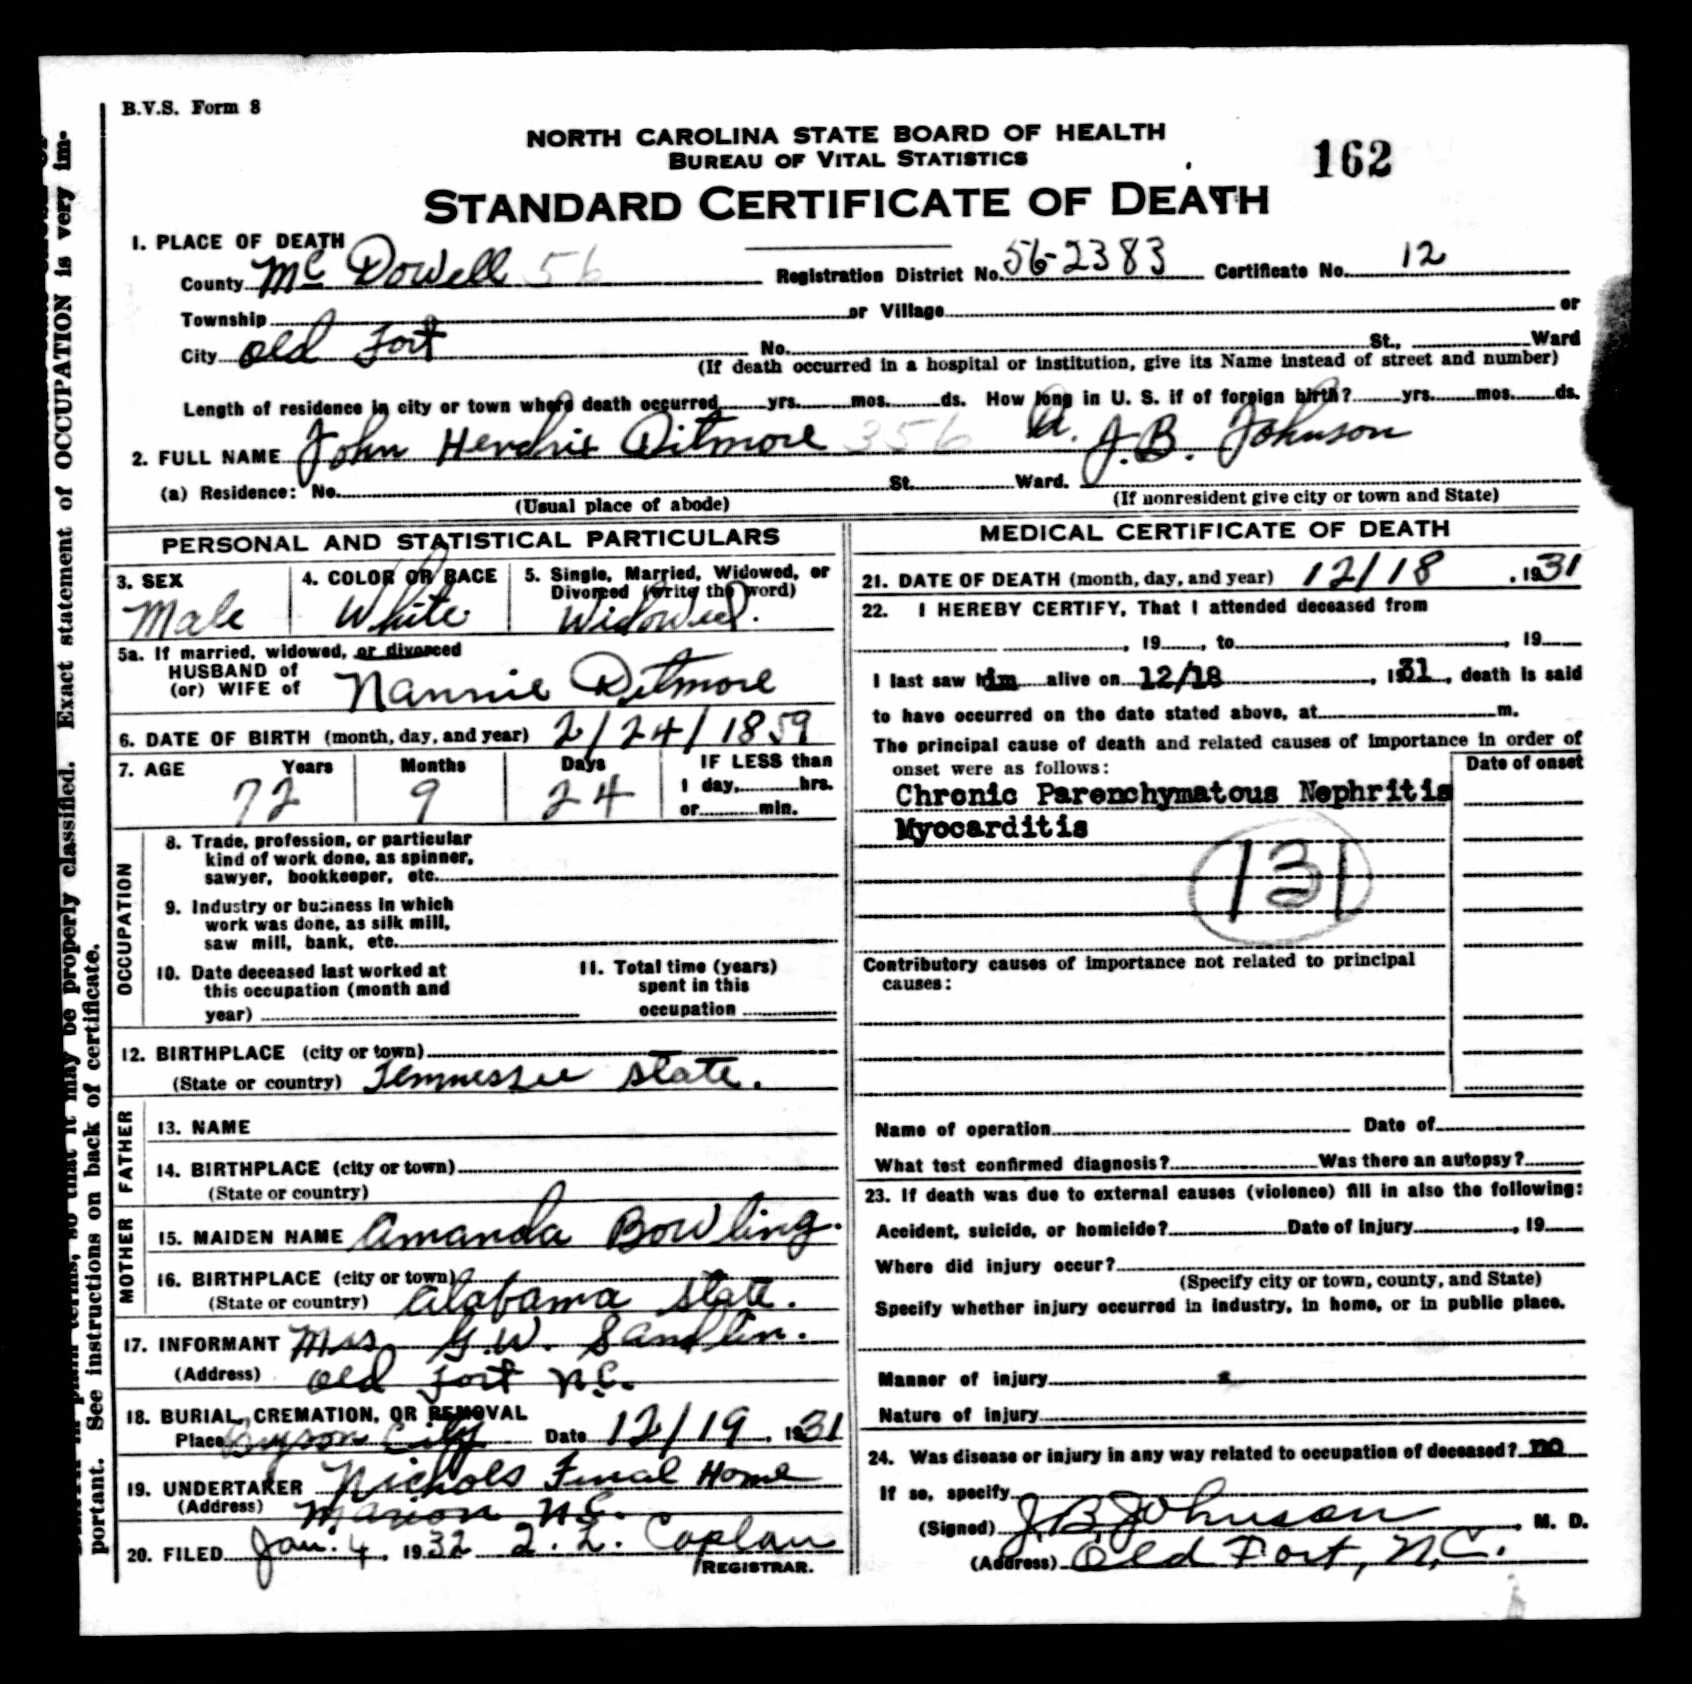 B.V.S. Form 8
NORTH CAROLINA STATE BOARD OF HEALTH
BUREAU OF VITAL STATISTICS
162
STANDARD CERTIFICATE OF DEATH
1. PLACE OF DEATH
County Mc Dowell 56 Registration District No. 56-2383 Certificate No. 12
Township or Village or
City Old Fort No. St., Ward
(If death occurred in a hospital or institution, give its Name instead of street and number)
Length of residence in city or town where death occurred yrs. mos. ds. How long in U. S. if of foreign birth? yrs. mos. ds.
2. FULL NAME John Hendrix Ditmore 356 a. J.B. Johnson
(a) Residence: No. St. Ward.
(Usual place of abode) (If nonresident give city or town and State)
PERSONAL AND STATISTICAL PARTICULARS
3. SEX 4. COLOR OR RACE 5. Single, Married, Widowed, or
Divorced (write the word)
Male White Widowed.
5a. If married, widowed, or divorced
HUSBAND of
(or) WIFE of Nannie Ditmore
6. DATE OF BIRTH (month, day, and year) 2/24/1859
7. AGE Years Months Days IF LESS than
72 9 24 1 day, hrs.
or min.
OCCUPATION
8. Trade, profession, or particular
kind of work done, as spinner,
sawyer, bookkeeper, etc.
9. Industry or business in which
work was done, as silk mill,
saw mill, bank, etc.
10. Date deceased last worked at
this occupation (month and
year)
11. Total time (years)
spent in this
occupation
12. BIRTHPLACE (city or town)
(State or country) Tennessee state.
FATHER
13. NAME
14. BIRTHPLACE (city or town)
(State or country)
MOTHER
15. MAIDEN NAME Amanda Bowling.
16. BIRTHPLACE (city or town)
(State or country) Alabama state.
17. INFORMANT Mrs G.W. Sandlin.
(Address) Old Fort N.C.
18. BURIAL, CREMATION, OR REMOVAL
Place Bryson City Date 12/19, 1931
19. UNDERTAKER Nichols Funal Home
(Address) Marion N.C.
20. FILED Jan. 4, 1932 L. Caplan
REGISTRAR.
MEDICAL CERTIFICATE OF DEATH
21. DATE OF DEATH (month, day, and year) 12/18, 1931
22. I HEREBY CERTIFY, That I attended deceased from
, 19 , to , 19
I last saw him alive on 12/18, 1931, death is said
to have occurred on the date stated above, at m.
The principal cause of death and related causes of importance in order of
onset were as follows:
Date of onset
Chronic Parenchymatous Nephritis
Myocarditis
131
Contributory causes of importance not related to principal
causes:
Name of operation Date of
What test confirmed diagnosis? Was there an autopsy?
23. If death was due to external causes (violence) fill in also the following:
Accident, suicide, or homicide? Date of injury , 19
Where did injury occur?
(Specify city or town, county, and State)
Specify whether injury occurred in industry, in home, or in public place.
Manner of injury
Nature of injury
24. Was disease or injury in any way related to occupation of deceased? no
If so, specify
(Signed) J.B. Johnson, M. D.
(Address) Old Fort, N.C.
terms, so that it may be properly classified. Exact statement of OCCUPATION is very im-
portant. See instructions on back of certificate.